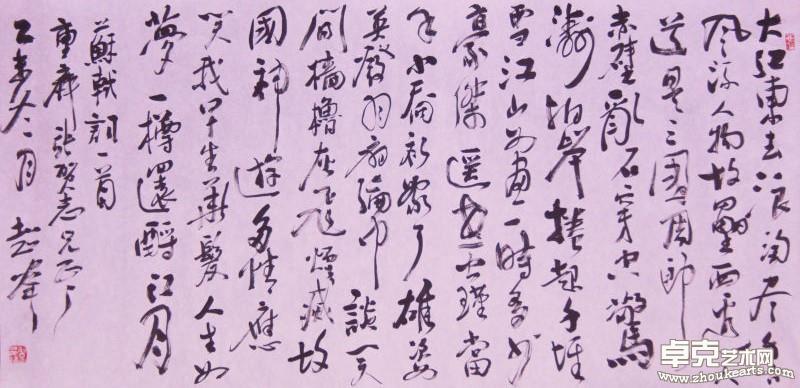 大江東去浪淘尽千古
風流人物故壘西邊人
道是三國周郎
赤壁亂石穿空驚
濤拍岸捲起千堆
雪江山如畫一時多少
豪傑遥想公瑾當
年小喬初嫁了雄姿
英發羽扇綸巾談笑
間檣櫓灰飛煙滅故
國神遊多情應
笑我早生華髮人生如
夢一樽還酹江月
蘇軾詞一首
張賀志兄正之
乙未冬一月
卓克艺术网
www.zhoukearts.com